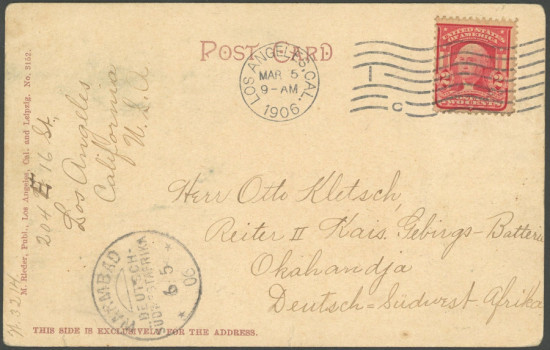 POST CARD
LOS ANGELES, CAL.
MAR 5
9-AM
1906
1
C
UNITED STATES
OF AMERICA
TWO CENTS
M. Rieder, Publ., Los Angeles, Cal. and Leipzig. No. 3152.
204 E 16 St.
Los Angeles
California
U.S.A
Herr Otto Kletsch,
Reiter II Kais. Gebirgs-Batterie
Okahandja
Deutsch-Südwest Afrika
WARMBAD
DEUTSCH-
SÜDWESTAFRIKA
6 5
06
THIS SIDE IS EXCLUSIVELY FOR THE ADDRESS.